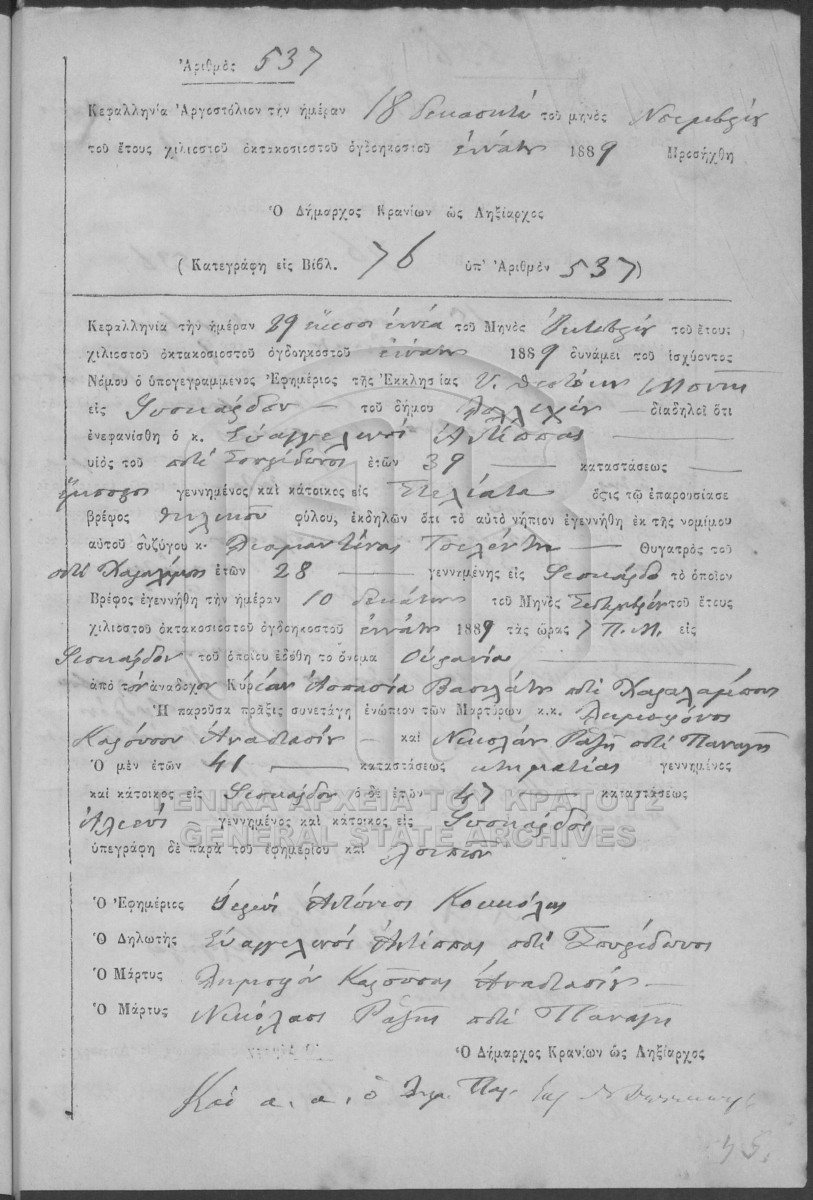 Ἀριθμὸς 537
Κεφαλληνία Ἀργοστόλιον τὴν ἡμέραν 18 δεκαοκτὼ τοῦ μηνὸς Νοεμβρίου
τοῦ ἔτους χιλιοστοῦ ὀκτακοσιοστοῦ ὀγδοηκοστοῦ ἐννάτου 1889 Προσήχθη
Ὁ Δήμαρχος Κρανίων ὡς Ληξίαρχος
(Κατεγράφη εἰς Βιβλ. 76 ὑπ' Ἀριθμὸν 537)
Κεφαλληνία τὴν ἡμέραν 29 εἴκοσι ἐννέα τοῦ Μηνὸς Ὀκτωβρίου τοῦ ἔτους
χιλιοστοῦ ὀκτακοσιοστοῦ ὀγδοηκοστοῦ ἐννάτου 1889 δυνάμει τοῦ ἰσχύοντος
Νόμου ὁ ὑπογεγραμμενος Ἐφημέριος τῆς Ἐκκλησίας Υ. Θεοτόκου
εἰς Φυσκάρδον τοῦ δήμου διαδηλοῖ ὅτι
ἐνεφανίσθη ὁ κ. Εὐαγγελινὸς Ἀντίππας
υἱὸς του ποτὲ Σπυρίδωνος ἐτῶν 39 καταστάσεως
ἔμπορος γεννημένος καὶ κάτοικος εἰς Στελιάτα ὅςτις τῷ ἐπαρουσίασε
βρέφος θηλυκοῦ φύλου, ἐκδηλῶν ὅτι τὸ αὐτὸ νήπιον ἐγεννήθη ἐκ τῆς νομίμου
αὐτοῦ συζύγου κ. Διαμαντίνας Τσελέντη Θυγατρὸς τοῦ
ποτὲ Χαραλάμπου ἐτῶν 28 γεννημένης εἰς Φισκάρδο τὸ ὁποῖον
Βρέφος ἐγεννήθη τὴν ἡμέραν 10 δεκάτην τοῦ Μηνὸς Σεπτεμβρίου τοῦ ἔτους
χιλιοστοῦ ὀκτακοσιοστοῦ ὀγδοηκοστοῦ ἐννάτου 1889 τὰς ὥρας 7 Π.Μ. εἰς
Φισκάρδον τοῦ ὁποίου ἐδόθη τὸ ὄνομα Οὐρανία
ἀπὸ τὸν ἀνάδοχον Κυρίαν Ἀσπασία Βασιλάτη ποτὲ Χαραλάμπους
Ἡ παροῦσα πρᾶξις συνετάγη ἐνώπιον τῶν Μαρτύρων κ.κ.
Καροῦσου Ἀναστασίου καὶ Νικολάου Ραζῆ ποτὲ Παναγῆ
Ὁ μὲν ἐτῶν 41 καταστάσεως κτηματίας γεννημένος
καὶ κάτοικος εἰς Φισκάρδον ὁ δὲ ἐτῶν 47 καταστάσεως
Ἁλιεὺς γεννημένος καὶ κάτοικος εἰς Φυσκάρδον
ὑπεγράφη δὲ παρὰ τοῦ ἐφημερίου καὶ λοιπῶν
ΓΕΝΙΚΑ ΑΡΧΕΙΑ ΤΟΥ ΚΡΑΤΟΥΣ
GENERAL STATE ARCHIVES
Ὁ Ἐφημέριος Ἱερεὺς Ἀντώνιος Κοκκόλης
Ὁ Δηλωτὴς Εὐαγγελινὸς Ἀντίππας ποτὲ Σπυρίδωνος
Ὁ Μάρτυς Καροῦσος Ἀναστασίου
Ὁ Μάρτυς Νικόλαος Ραζῆς ποτὲ Παναγῆ
Ὁ Δήμαρχος Κρανίων ὡς Ληξίαρχος
Καὶ α. α. ὁ